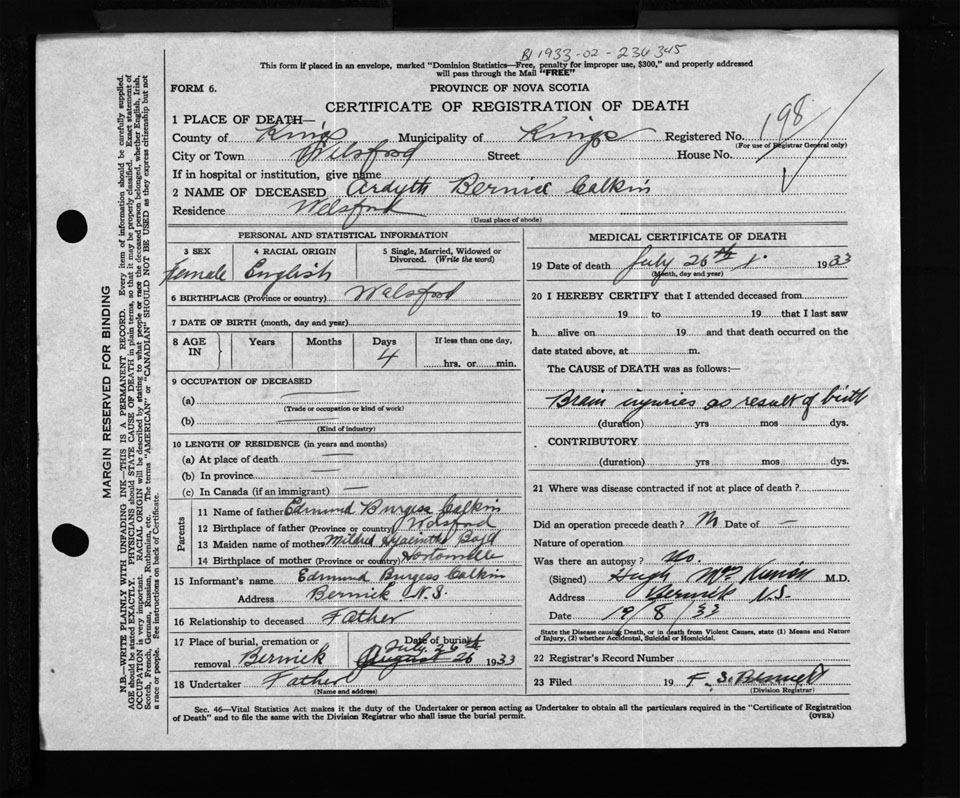 B1 1933-02-236345
This form if placed in an envelope, marked "Dominion Statistics—Free, penalty for improper use, $300," and properly addressed
will pass through the Mail "FREE"
FORM 6.
PROVINCE OF NOVA SCOTIA
CERTIFICATE OF REGISTRATION OF DEATH
1 PLACE OF DEATH—
County of Kings Municipality of Kings Registered No. 198
(For use of Registrar General only)
City or Town Welsford Street House No.
If in hospital or institution, give name
2 NAME OF DECEASED Ardyth Bernice Calkin
Residence Welsford
(Usual place of abode)
PERSONAL AND STATISTICAL INFORMATION
3 SEX 4 RACIAL ORIGIN 5 Single, Married, Widowed or
Divorced. (Write the word)
Female English
6 BIRTHPLACE (Province or country) Welsford
7 DATE OF BIRTH (month, day and year)
8 AGE IN Years Months Days If less than one day,
4 hrs. or min.
9 OCCUPATION OF DECEASED
(a) —
(Trade or occupation or kind of work)
(b) —
(Kind of industry)
10 LENGTH OF RESIDENCE (in years and months)
(a) At place of death —
(b) In province —
(c) In Canada (if an immigrant) —
Parents
11 Name of father Edmund Burgess Calkin
12 Birthplace of father (Province or country) Welsford
13 Maiden name of mother Mildred Hyacinthe Boyd
14 Birthplace of mother (Province or country) Hortonville
15 Informant's name Edmund Burgess Calkin
Address Berwick N.S.
16 Relationship to deceased Father
17 Place of burial, cremation or Date of burial
July 26th
removal Berwick August 26 1933
18 Undertaker Father
(Name and address)
MEDICAL CERTIFICATE OF DEATH
19 Date of death July 26th 1933
(Month, day and year)
20 I HEREBY CERTIFY that I attended deceased from
19 to 19 that I last saw
h alive on 19 and that death occurred on the
date stated above, at m.
The CAUSE of DEATH was as follows:—
Brain injuries as result of birth
(duration) yrs mos dys.
CONTRIBUTORY
(duration) yrs. mos dys.
21 Where was disease contracted if not at place of death?
Did an operation precede death? No Date of —
Nature of operation
Was there an autopsy? No
(Signed) Hugh M.D.
Address Berwick N.S.
Date 19/8/33
State the Disease causing Death, or in death from Violent Causes, state (1) Means and Nature
of Injury, (2) whether Accidental, Suicidal or Homicidal.
22 Registrar's Record Number
23 Filed 19 F. S.
(Division Registrar)
Sec. 46—Vital Statistics Act makes it the duty of the Undertaker or person acting as Undertaker to obtain all the particulars required in the "Certificate of Registration
of Death" and to file the same with the Division Registrar who shall issue the burial permit. (OVER)
MARGIN RESERVED FOR BINDING
N.B.—WRITE PLAINLY WITH UNFADING INK—THIS IS A PERMANENT RECORD. Every item of information should be carefully supplied.
AGE should be stated EXACTLY. PHYSICIANS should STATE CAUSE OF DEATH in plain terms, so that it may be properly classified. Exact statement of
OCCUPATION is very important. RACIAL ORIGIN will be described by stating to what people or race the deceased person belonged, whether English, Irish,
Scotch, French, German, Russian, Ruthenian, etc. The terms "AMERICAN" or "CANADIAN" SHOULD NOT BE USED as they express citizenship but not
a race or people. See instructions on back of Certificate.